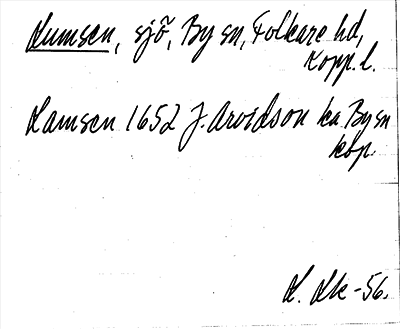 Lumsen, sjö, By sn, Folkare hd,
Kopp. l.
Lamsen 1652 J. Arvidson ka By sn
kbp.
L. Lk -56.